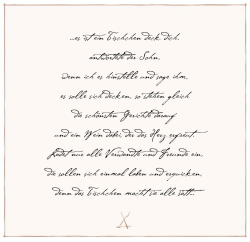 ...es ist ein Tischchen deck dich,
antwortete der Sohn,
wenn ich es hinstelle und sage ihm,
es solle sich decken, so stehen gleich
die schönsten Gerichte darauf
und ein Wein dabei, der das Herz erfreut.
Ladet nur alle Verwandte und Freunde ein,
die sollen sich einmal laben und erquicken,
denn das Tischchen macht sie alle satt...